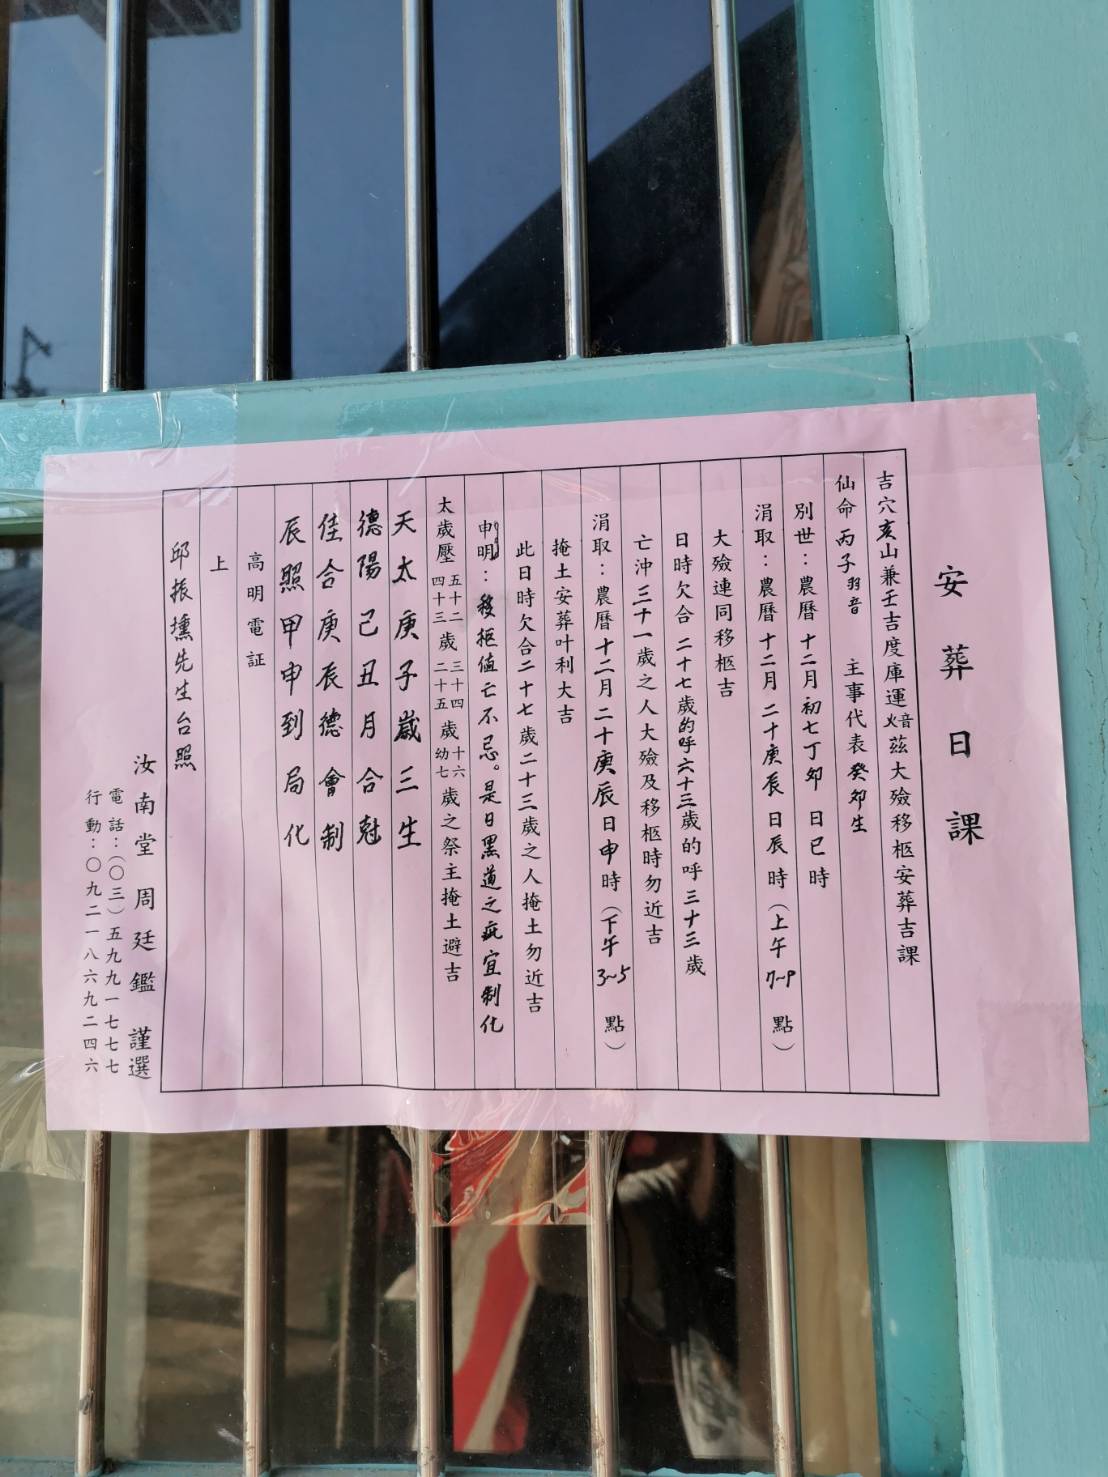 安葬日課
吉穴亥山兼壬吉度庫運火音茲大殮移柩安葬吉課
仙命丙子羽音 主事代表癸卯生
別世：農曆十二月初七丁卯日巳時
涓取：農曆十二月二十庚辰日辰時（上午7~9點）
大殮連同移柩吉
日時欠合二十七歲的呼六十三歲的呼三十三歲
亡沖三十一歲之人大殮及移柩時勿近吉
涓取：農曆十二月二十庚辰日申時（下午3~5點）
掩土安葬叶利大吉
此日時欠合二十七歲二十三歲之人掩土勿近吉
申明：移柩值亡不忌。是日黑道之疵宜制化
太歲壓五十二四十三歲三十四二十五歲十六幼七歲之祭主掩土避吉
天太庚子歲三生
德陽己丑月合尅
佳合庚辰德會制
辰照甲申到局化
高明電証
上
邱振壎先生台照
汝南堂周廷鑑 謹選
電話：（〇三）五九九一七七七
行動：〇九二一八六九二四六